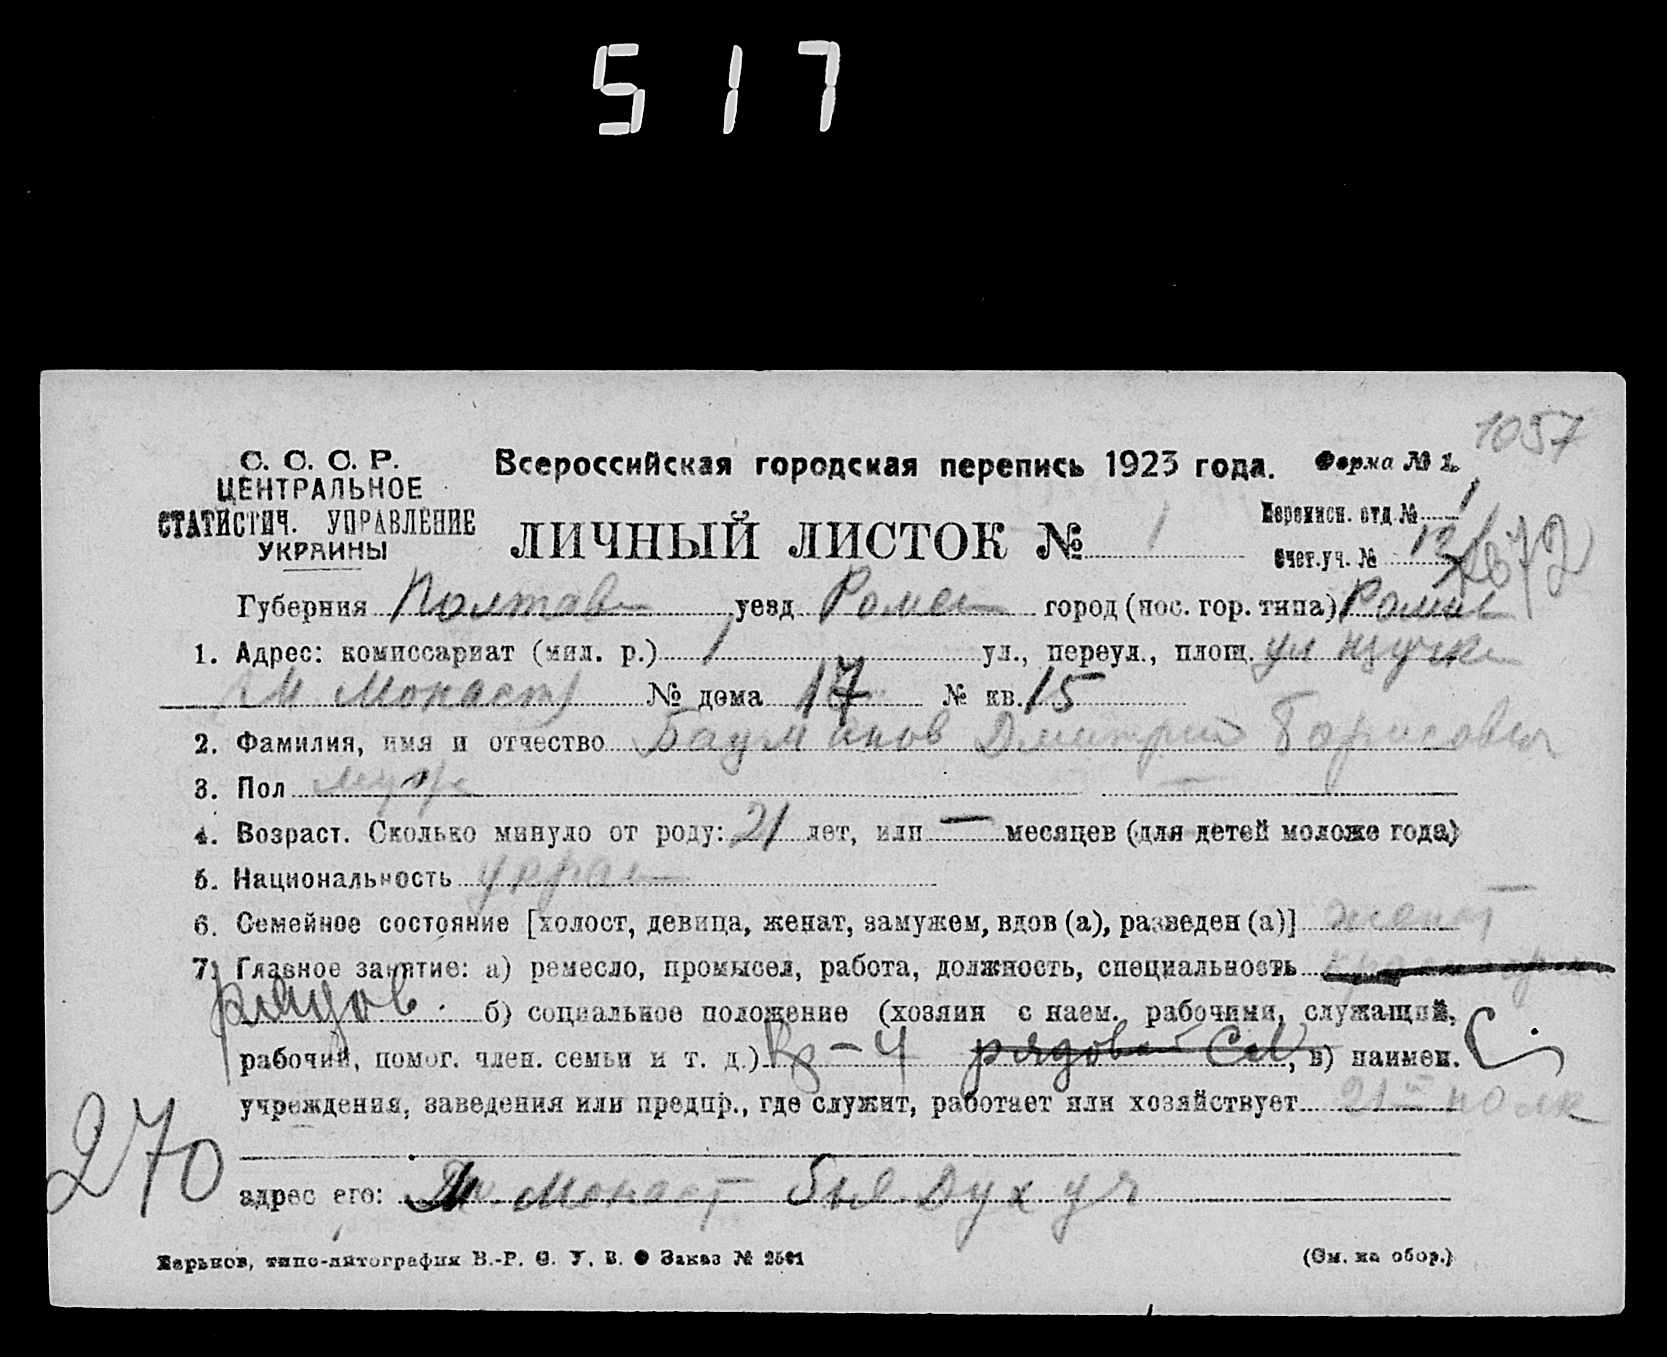 517
1057
С. С. С. Р.
ЦЕНТРАЛЬНОЕ
СТАТИСТИЧ. УПРАВЛЕНИЕ
УКРАИНЫ
Всероссийская городская перепись 1923 года. Форма № 1.
ЛИЧНЫЙ ЛИСТОК № 1
Переписн. отд. № 1
Счет. уч. № 13 / 672
Губерния Полтав уезд Ромен город (пос. гор. типа) Ромны
1. Адрес: комиссариат (мил. р.) 1 ул., переул., площ. ул
М Монаст) № дома 17 № кв. 15
2. Фамилия, имя и отчество Бауманов Дмитрий Борисович
3. Пол муж —
4. Возраст. Сколько минуло от роду: 21 лет, или — месяцев (для детей моложе года)
5. Национальность украин
6. Семейное состояние [холост, девица, женат, замужем, вдов (а), разведен (а)] женат
7. Главное занятие: а) ремесло, промысел, работа, должность, специальность
рядов. б) социальное положение (хозяин с наем. рабочими, служащий,
рабочий, помог. член. семьи и т. д.) Кр-4 рядовой, в) наимен.
учреждения, заведения или предпр., где служит, работает или хозяйствует 21 полк
270
адрес его: М. Монаст Быв. Дух уч
Харьков, типо-литография В.-Р. С. У. В. Заказ № 2561 (См. на обор.)